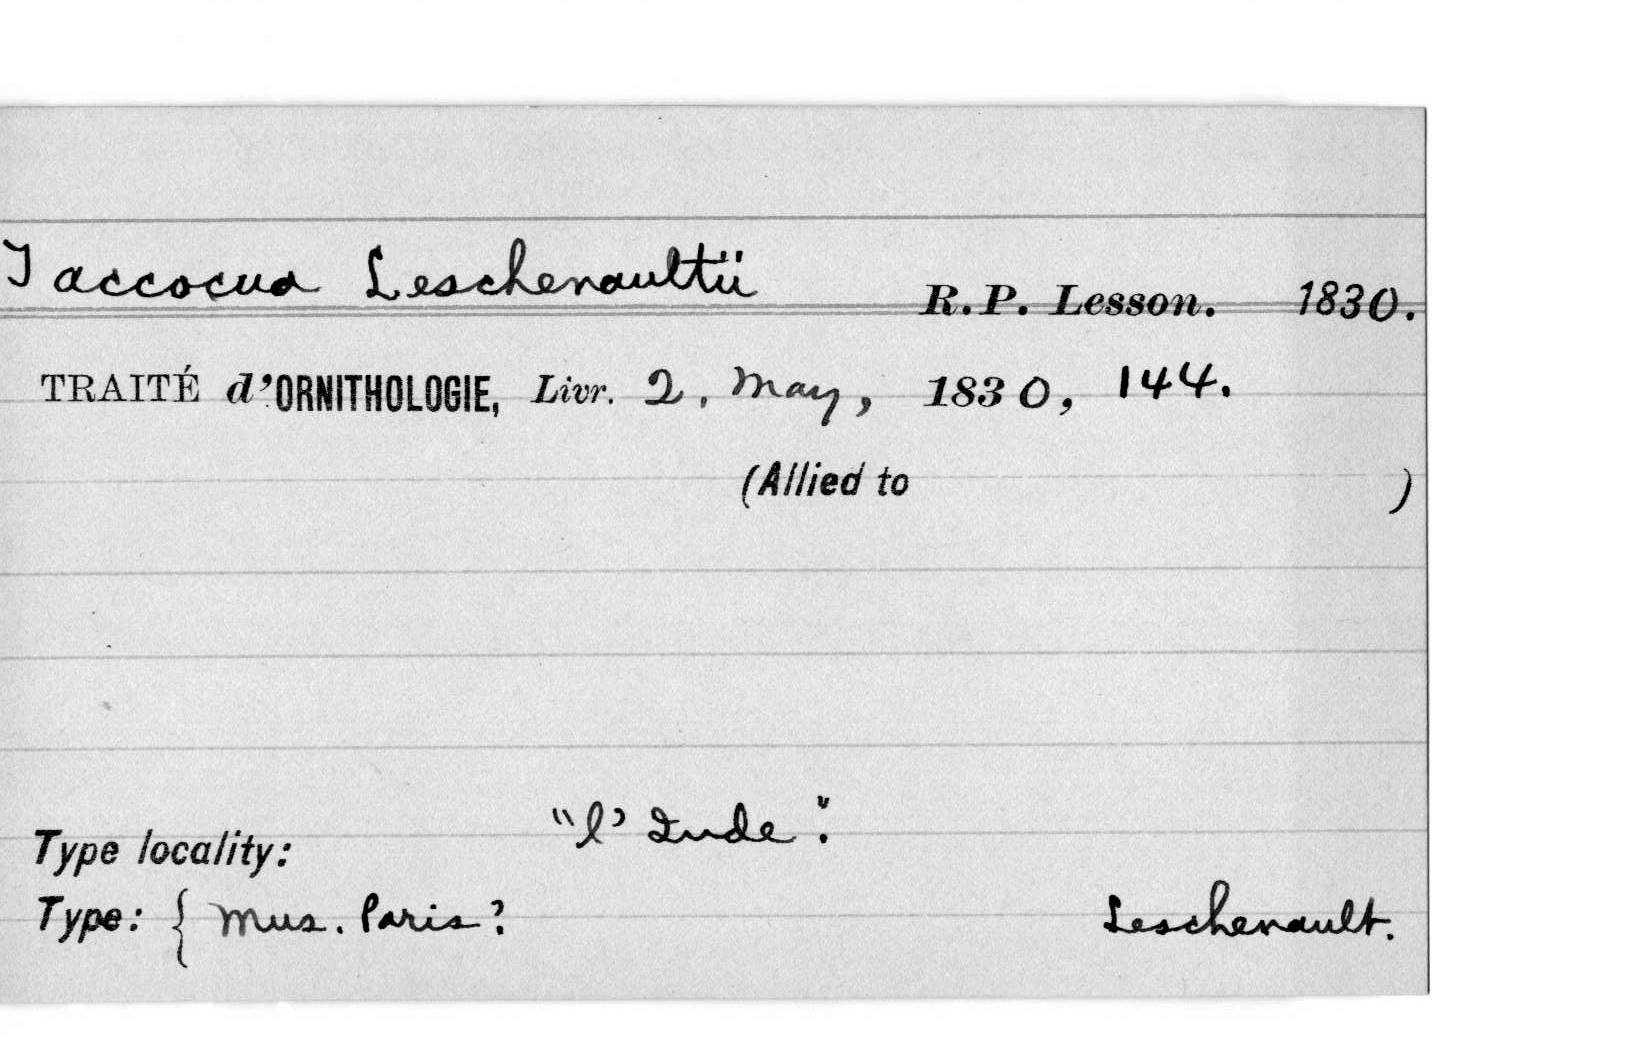 Taccocua Leschenaultii R.P. Lesson. 1830.
TRAITÉ d'ORNITHOLOGIE, Livr. 2, May, 1830, 144.
(Allied to )
Type locality: "l'Inde".
Type: { Mus. Paris? Leschenault.